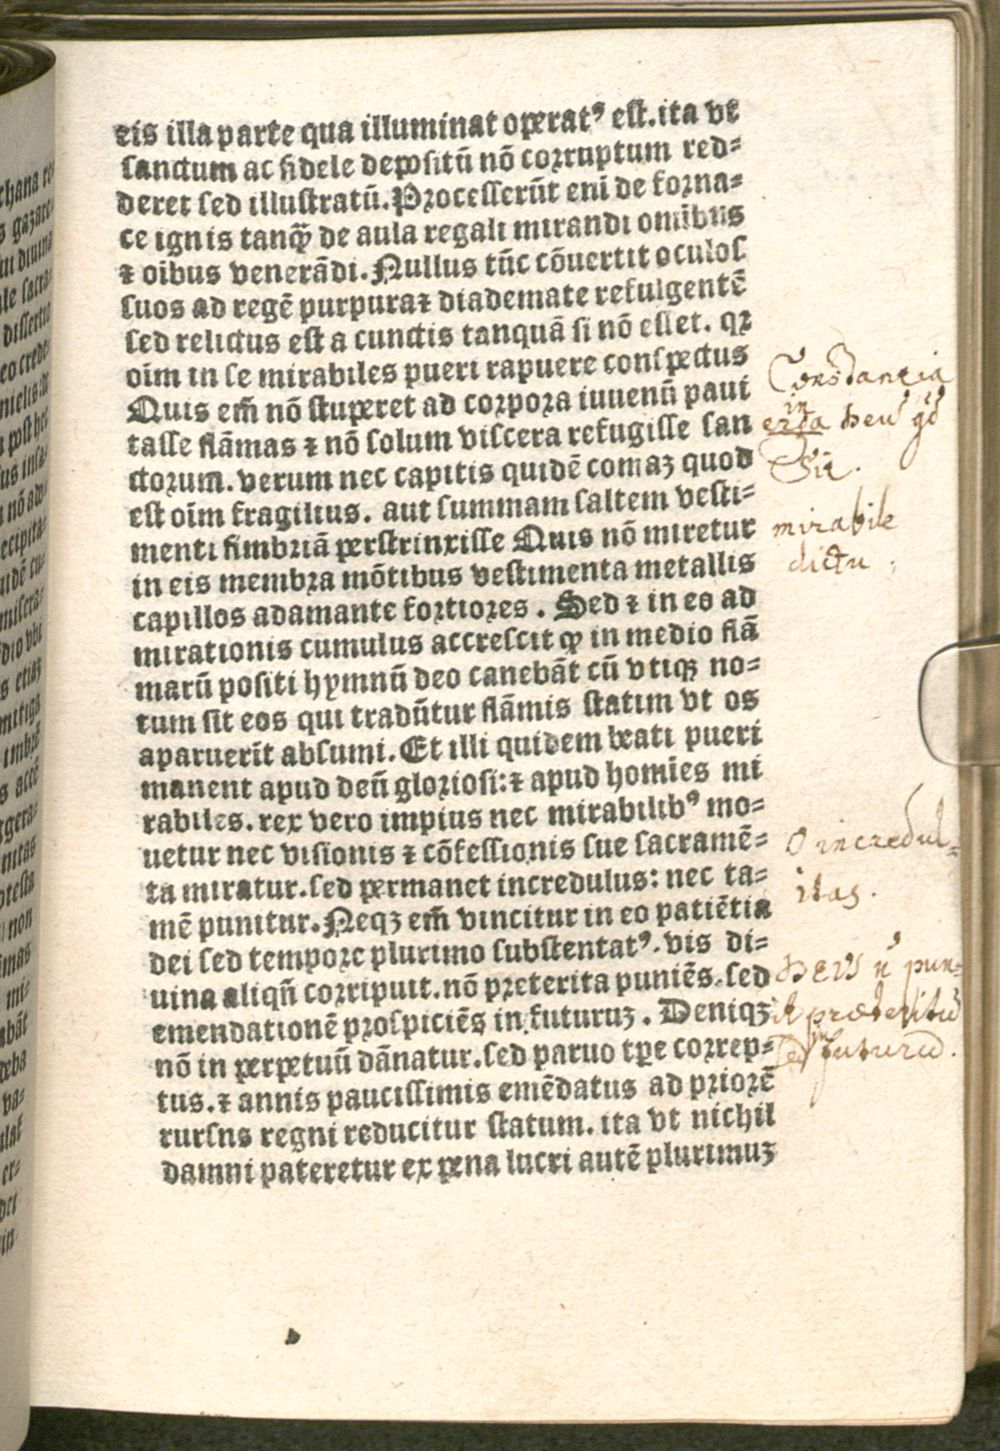 eis illa parte qua illuminat operatꝰ est. ita vt
sanctum ac fidele depositū nō corruptum red=
deret sed illustratū. Processerūt eni de forna=
ce ignis tanqȝ de aula regali mirandi omībus
⁊ oibus venerādi. Nullus tūc cōuertit oculos
suos ad regē purpura⁊ diademate refulgentē
sed relictus est a cunctis tanquā si nō esset. qꝛ
oīm in se mirabiles pueri rapuere conspectus
Quis em̄ nō stuperet ad corpora iuuenū paui
tasse flāmas ⁊ nō solum viscera refugisse san
ctorum. verum nec capitis quidē comaȝ quod
est oīm fragilius. aut summam saltem vesti=
menti fimbriā perstrinxisse Quis nō miretur
in eis membra mōtibus vestimenta metallis
capillos adamante fortiores . Sed ⁊ in eo ad
mirationis cumulus accrescit ꝙ in medio flā
marū positi hymnū deo canebāt cū vtiqȝ no=
tum sit eos qui tradūtur flāmis statim vt os
aparuerīt absumi. Et illi quidem beati pueri
manent apud deū gloriosi:⁊ apud homīes mi
rabiles. rex vero impius nec mirabilibꝰ mo=
uetur nec visionis ⁊ cōfessionis sue sacramē=
ta miratur. sed permanet incredulus: nec ta=
mē punitur. Neqȝ em̄ vincitur in eo patiētia
dei sed tempore plurimo substentatꝰ. vis di=
uina aliqñ corripuit. nō preterita puniēs. sed
emendationē prospiciēs in futuruȝ . Deniqȝ
nō in perpetuū dānatur. sed paruo tpe correp=
tus. ⁊ annis paucissimis emēdatus ad priorē
rursns regni reducitur statum. ita vt nichil
damni pateretur ex pena lucri autē plurimuȝ
Constantia
in
erga Deu
Sit.
mirabile
dictu :
O incredul=
itas.
DEVS ñ pun=
it præteritū
sed in futurū.
chana
s gazare
diuina
sacra
eo crede